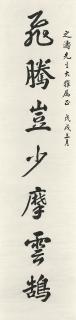 飛騰豈少摩雲鵠
之濤先生大雅屬正 戊戌三月